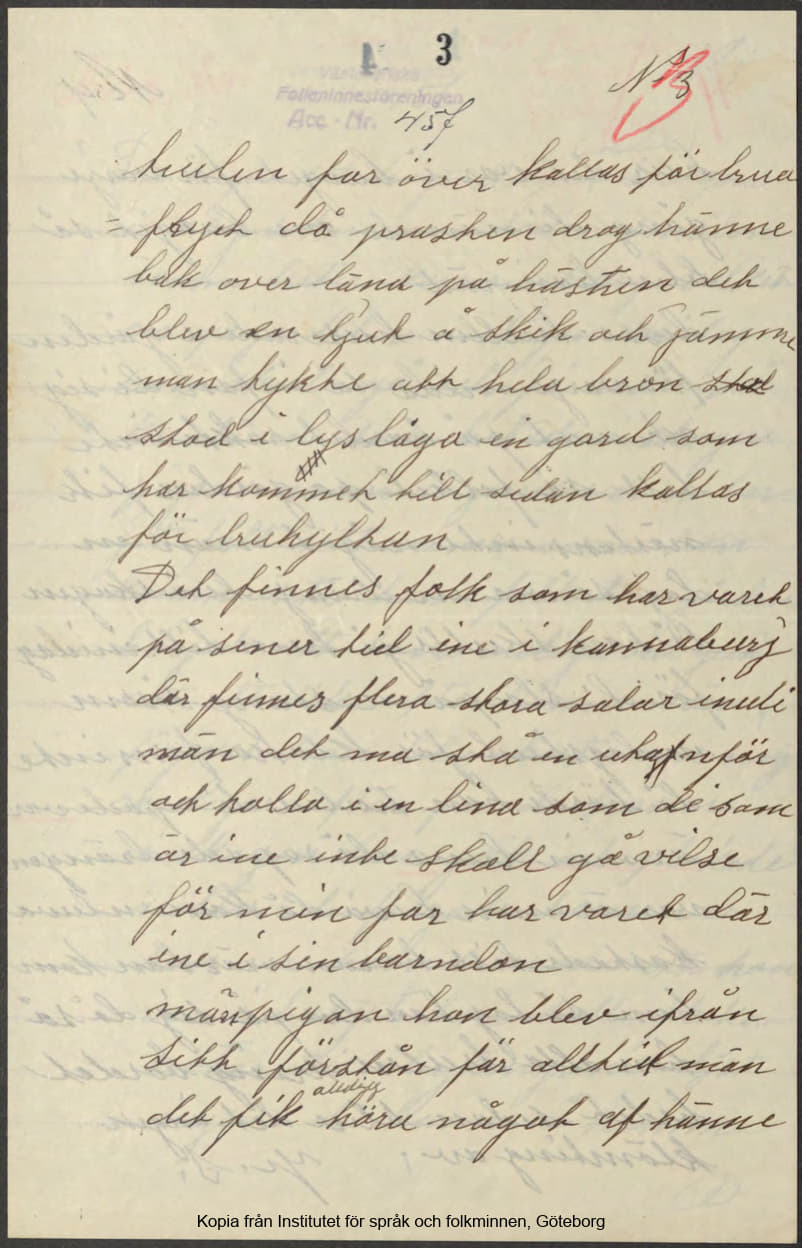 3
No 3
Folkminnesföreningen
Acc. Nr. 457
far över kallas för brua
= flyet då prasten drog hänne
bak over länd på hästen det
blev en tjut å skik och jämme
man tykte att hela bron
stod i lys låga en gard som
har kommet till sedan kallas
för bruhyltan
Det finnes folk som har varet
på sener tid ine i kannaburj
där finnes flera stora salar inuti
män det ma stå en utanför
och holla i en lina som de som
är ine inte skall gå vilse
för min far har varet där
ine i sin barndon
män pigan hon blev ifrån
sitt förstån får alltid män
det fik aldig höra något af hänne
Kopia från Institutet för språk och folkminnen, Göteborg